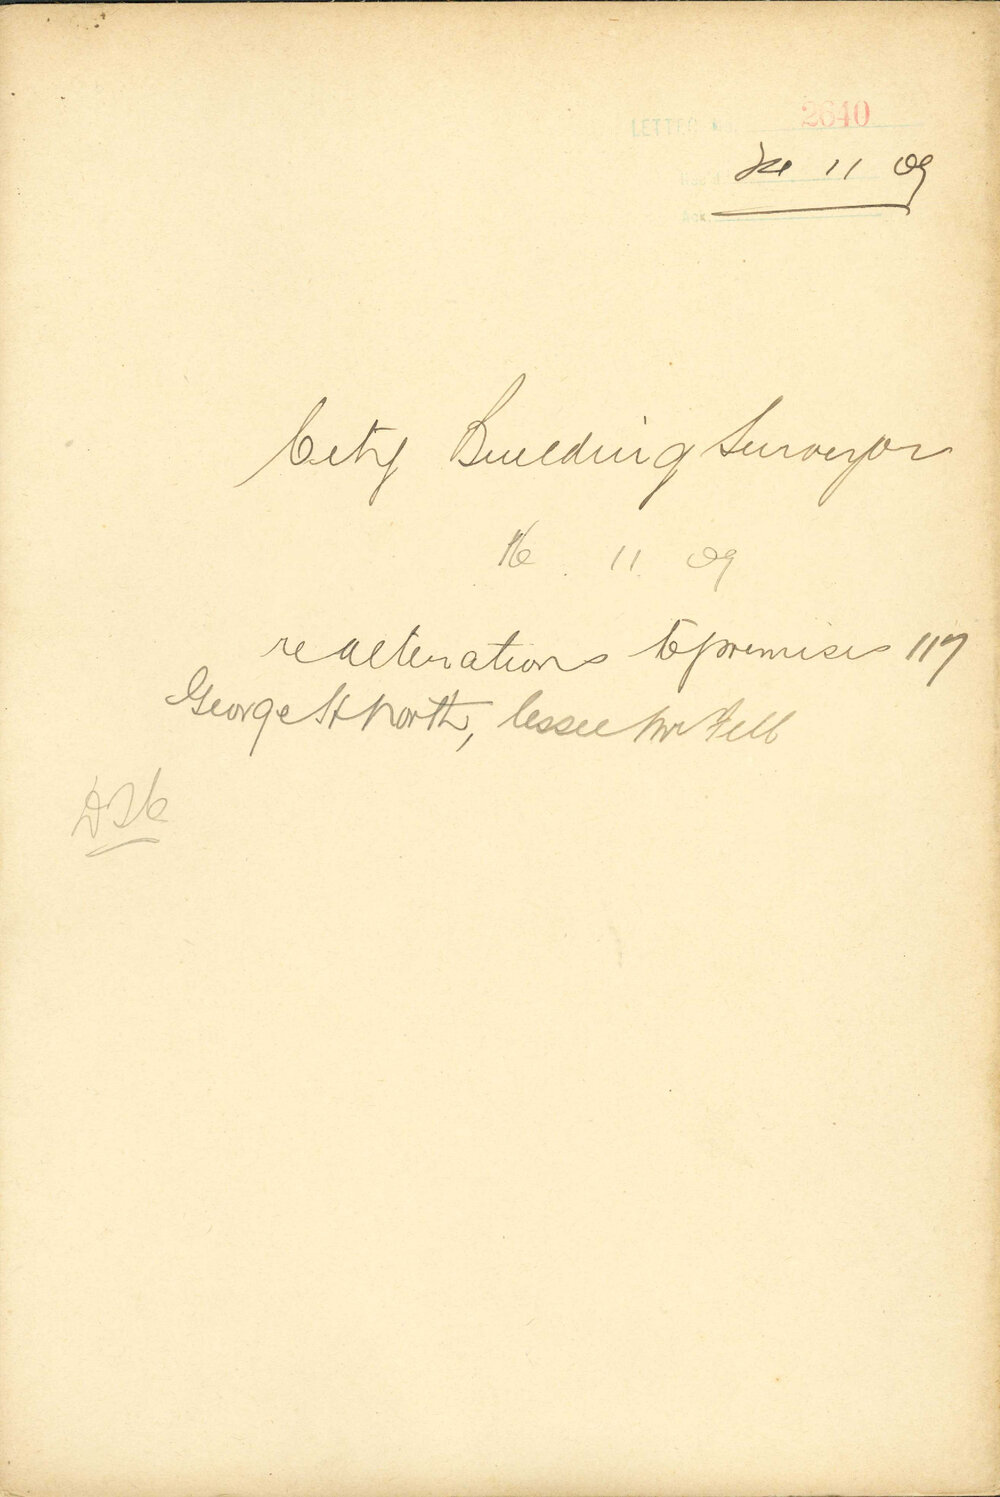 LETTER No. 2640
Rec'd 11 09
Ack.
City Building Surveyor
16. 11. 09
re alterations to premises 117
George St North, lessee Mr Fell